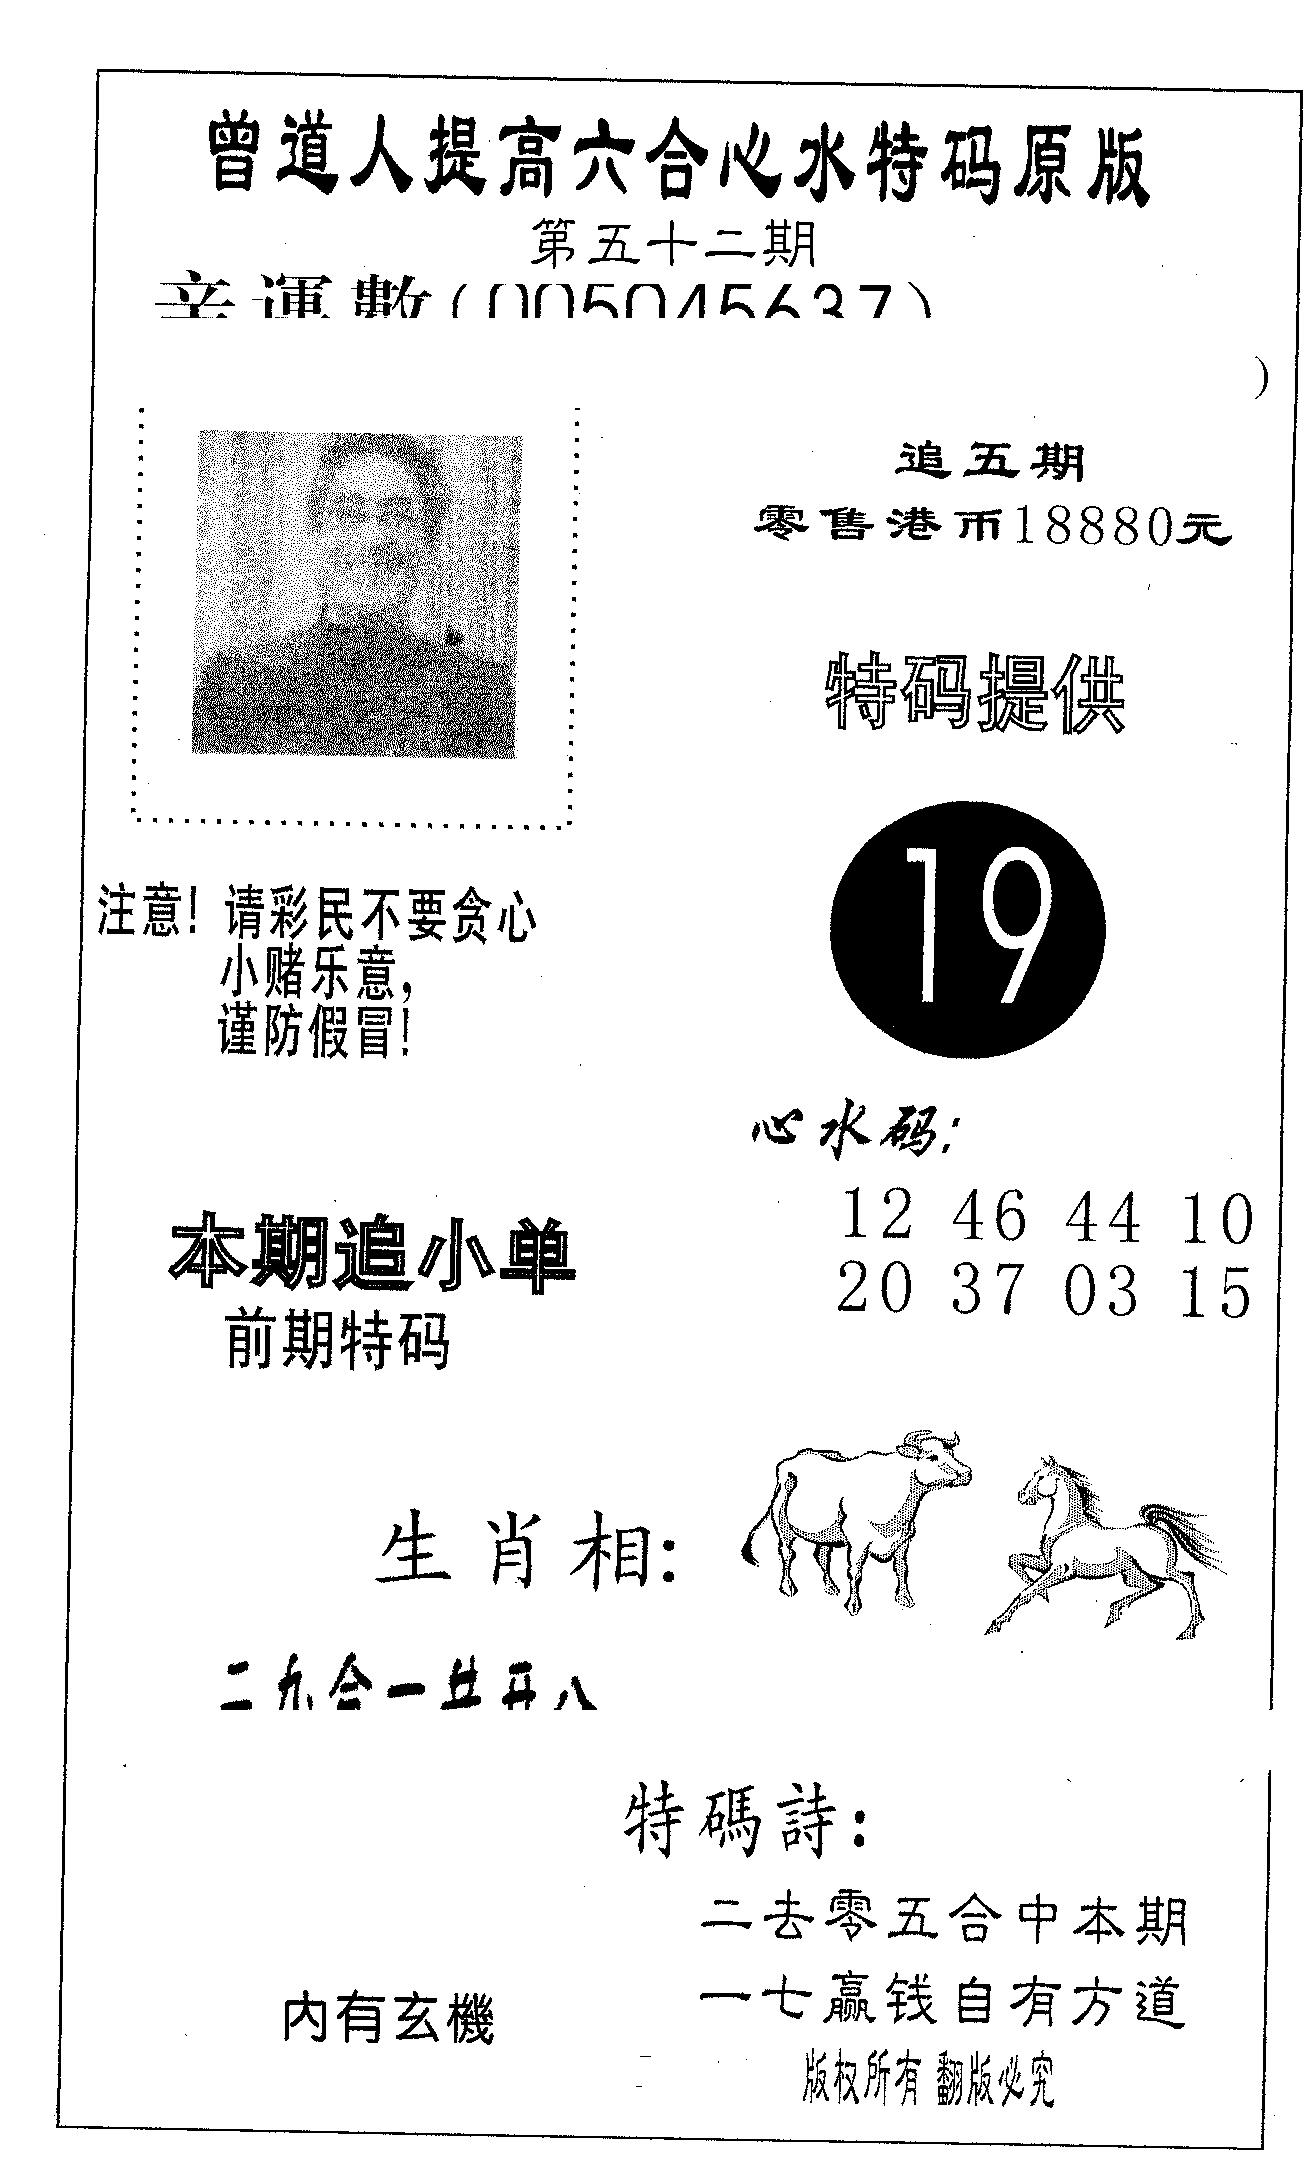 曾道人提高六合心水特码原版
第五十二期
幸運數(005045637)
)
追五期
零售港币18880元
特码提供
19
注意! 请彩民不要贪心
小赌乐意,
谨防假冒!
心水码:
12 46 44 10
20 37 03 15
本期追小单
前期特码
生肖相:
二九合一廿
特碼詩:
二去零五合中本期
一七赢钱自有方道
内有玄機
版权所有 翻版必究